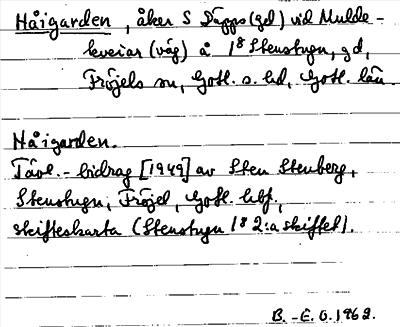 Håigarden, åker S Däpps (gd) vid Mulde-
leveiar (väg) å 1⁸ Stenstugu, gd,
Fröjels sn, Gotl. s. hd, Gotl. län
Håigarden.
Tävl.-bidrag [1949] av Sten Stenberg,
Stenstugu, Fröjel, Gotl. hbf.,
skifteskarta (Stenstugu 1⁸ 2:a skiftet).
B.-E. G. 1962.